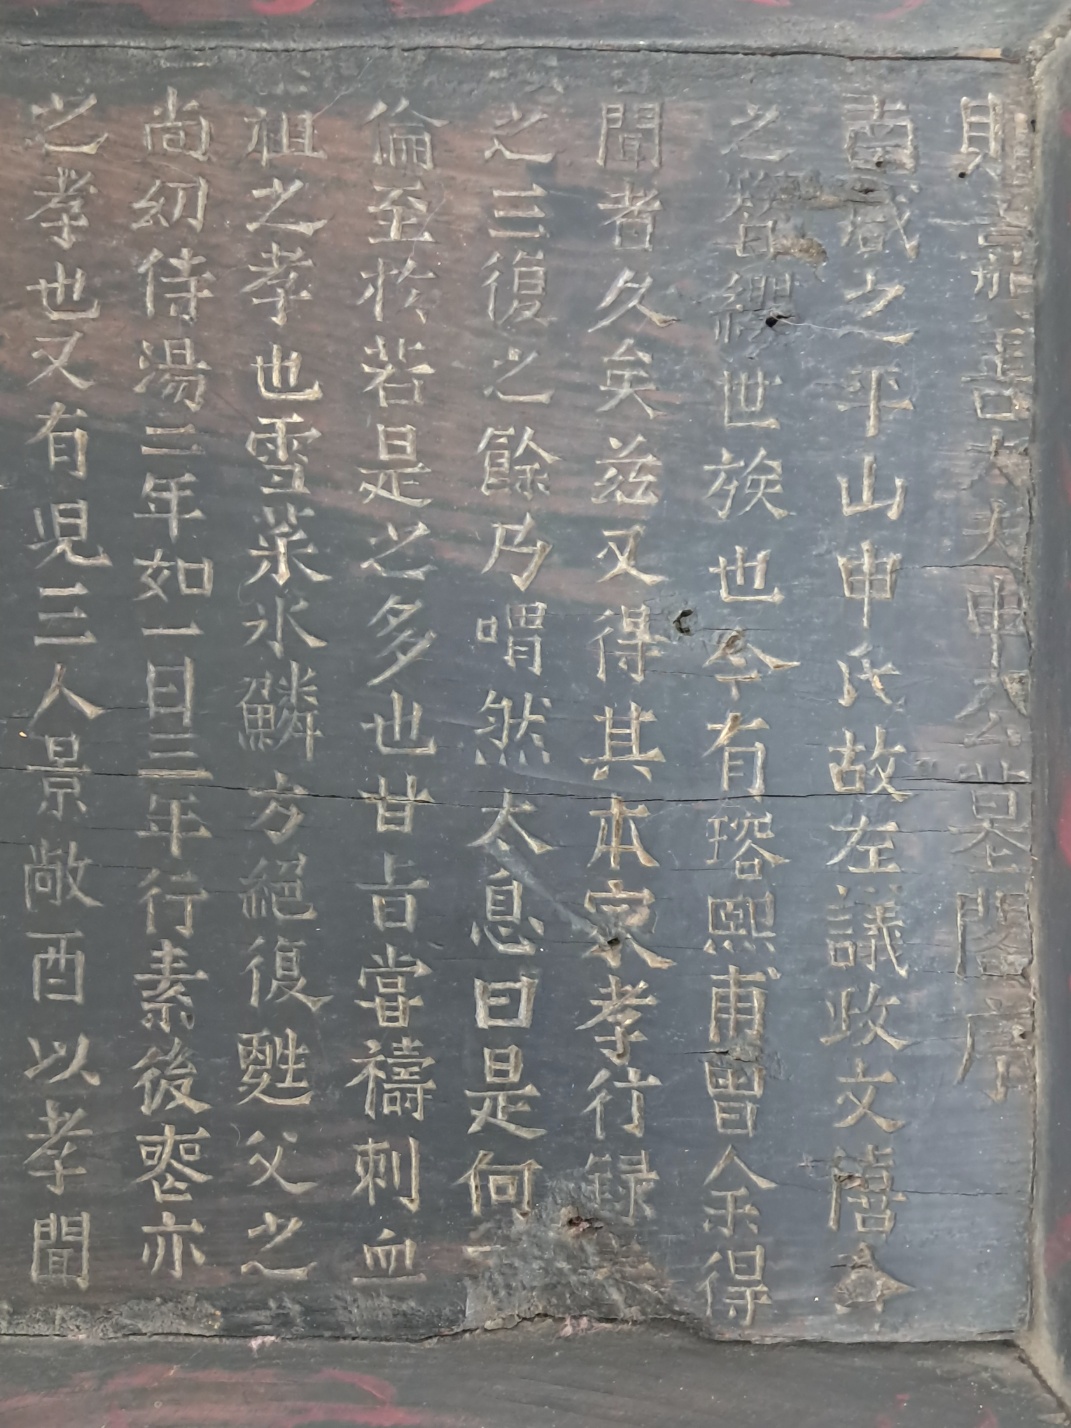 則嘉善大夫申公墓閣序
南咸之平山申氏故左議政文僖公
之簪纓世族也今有瑢熙甫曾余得
聞者久矣玆又得其本家孝行錄
之三復之餘乃喟然太息曰是何
倫至於若是之多也甘旨當禱刺血
祖之孝也雪菜氷鱗方絕復甦父之
尚幼侍湯三年如一日三年行素後喪亦
之孝也又有兒三人景敞酉以孝聞